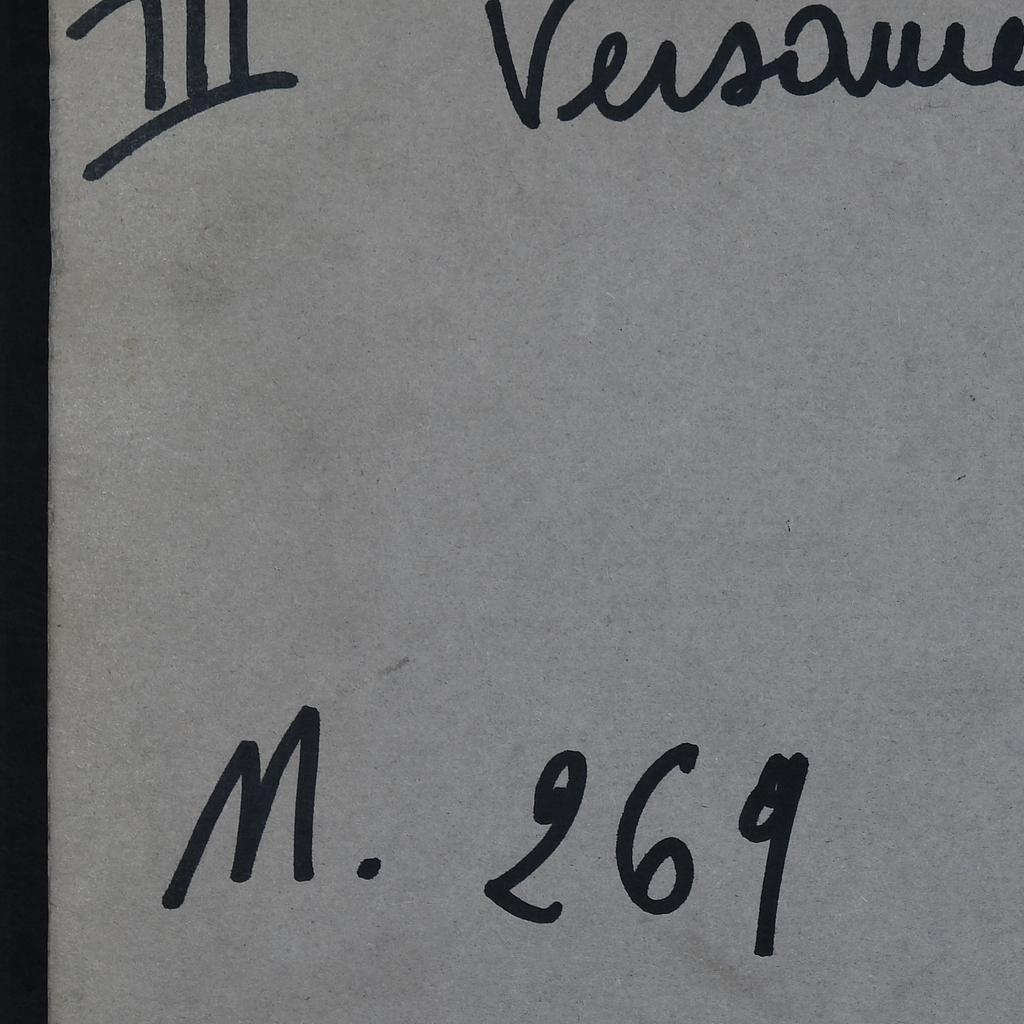 III Versame
M. 269